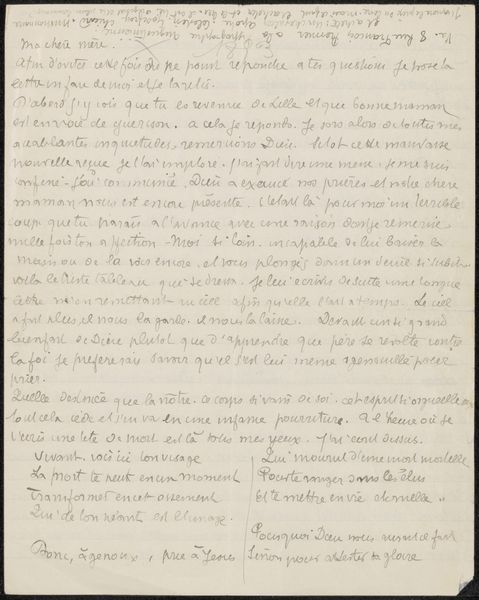 Ma chère mère.
Afin d'éviter cette fois de ne pour répondre à tes questions je pose là
cette infame de moi et je la relis.
D'abord j'y vois que tu es revenue de Lille et que bonne maman
est en voie de guérison. a cela je reponds. Je sors alors de toutes mes
accablantes inquietudes, remercions Dieu. Sitot cette mauvaise
nouvelle reçue je l'ai imploré. j'ai fait dire une messe. je me suis
confessé - j'ai communié. Dieu a exaucé nos prières et notre chère
maman nous est encore présente. C'était là pour moi un terrible
coup que tu parais à l'avance avec une raison dont je remercie
mille fois ton affection - Moi si loin. incapable de lui baiser la
main ou de la voir encore. et vous plongés dans un deuil si subit -
voilà le triste tableau qui se dressa. Je lui écrivis de suite une longue
lettre m'en remettant au ciel afin qu'elle l'ait à temps. Le ciel
a fait plus, il nous la garde. il nous la laisse. Devant un si grand
bienfait de Dieu plutot que d'apprendre que père se revolte contre
la foi je prefererais savoir qu'il s'est lui même agenouillé pour
prier.
Quelle destinée que la nôtre. ce corps si vain de soi. cet esprit si orgueilleux
tout cela cède et s'en va en une infame pourriture. A l'heure où je
t'écris une tête de mort est là sous mes yeux. J'ai écrit dessus.
Vivant. voici ici ton visage
La mort te rend en un moment
Transformer en cet ossement
Qui de ton néant est l'image.
Donc, à genoux, prie à Jesus
Qui mourut d'une mort modelle
Pour te ranger dans les élus
Et te mettre en vie éternelle..
Pourquoi Dieu nous aurait-il fait
Sinon pour attester sa gloire